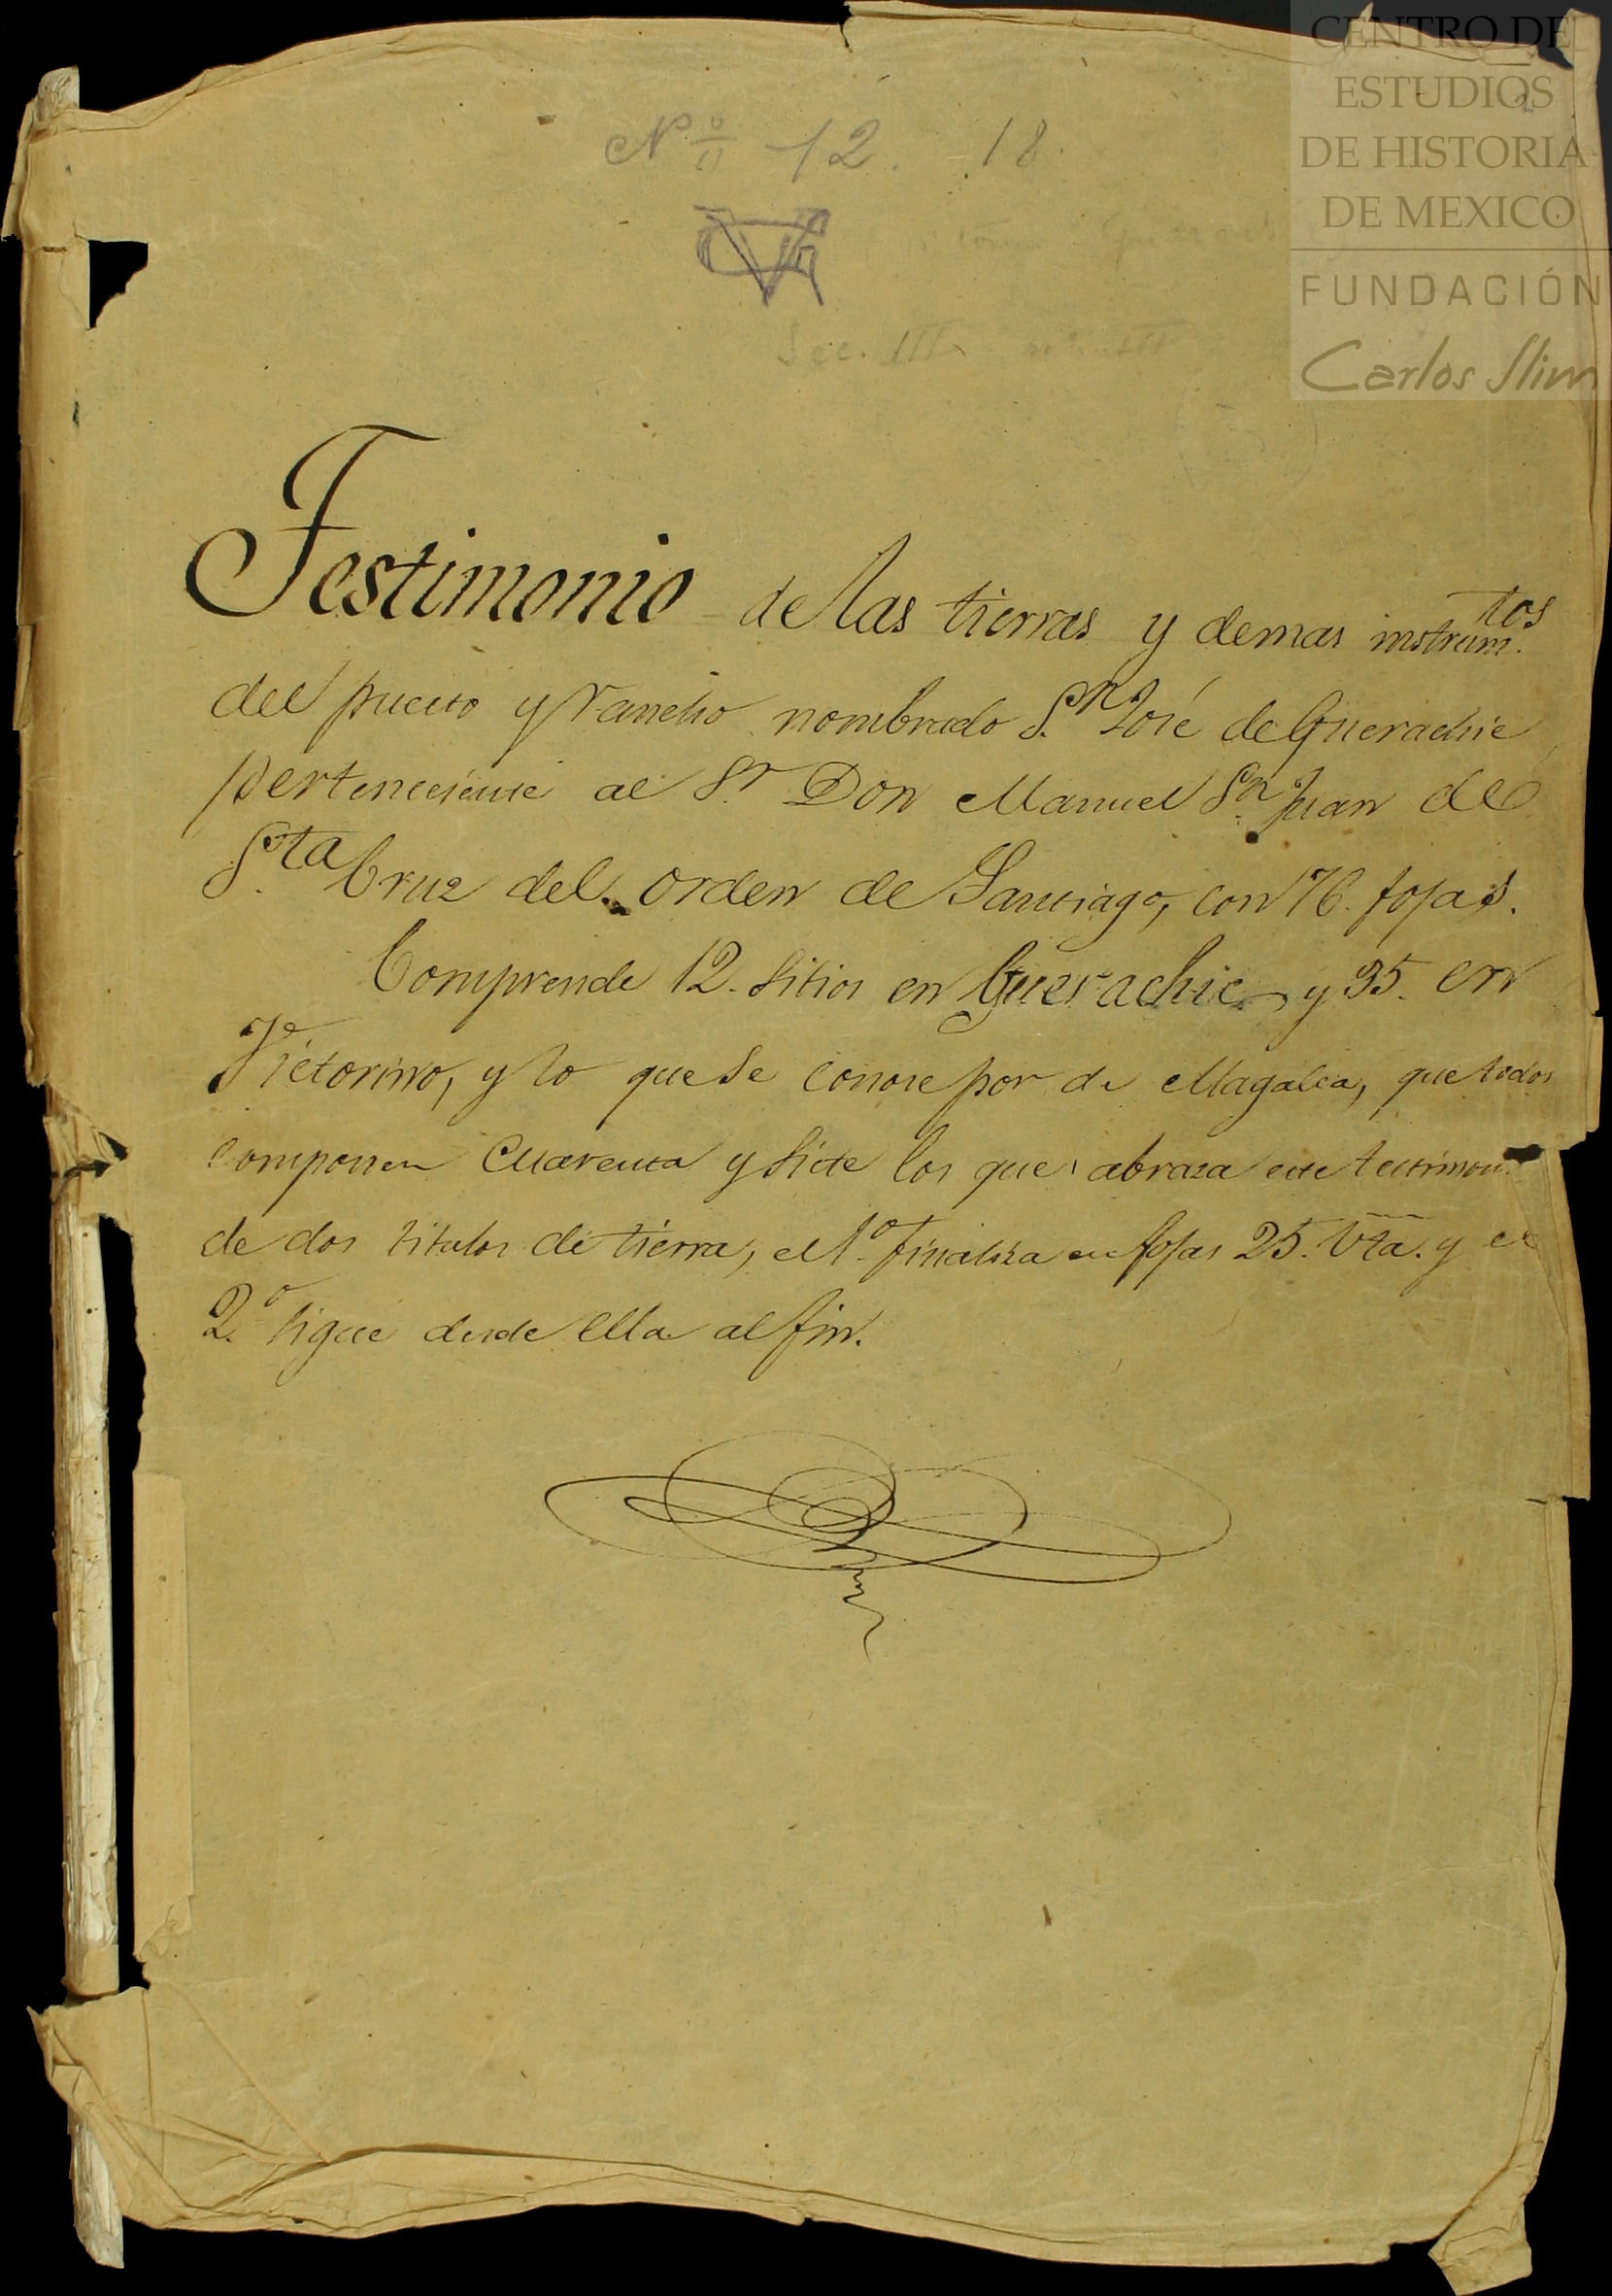 CENTRO DE
ESTUDIOS
DE HISTORIA
DE MEXICO
FUNDACIÓN
Carlos Slim
Nº 12. 18.
Sec. III
Testimonio de las tierras y demas instrum.tos
del puesto y rancho nombrado S.n José de Guerachic
perteneciente al S.r Don Manuel S.n Juan de
S.ta Cruz del orden de Santiago, con 76. fojas.
Comprende 12. sitios en Guerachic y 35. en
Victorino, y lo que se conose por de Magalca, que todos
componen cuarenta y siete los que abraza este testimon.
de dos titulos de tierra, el 1.º finaliza en fojas 25. Vta. y el
2.º sigue desde ella al fin.